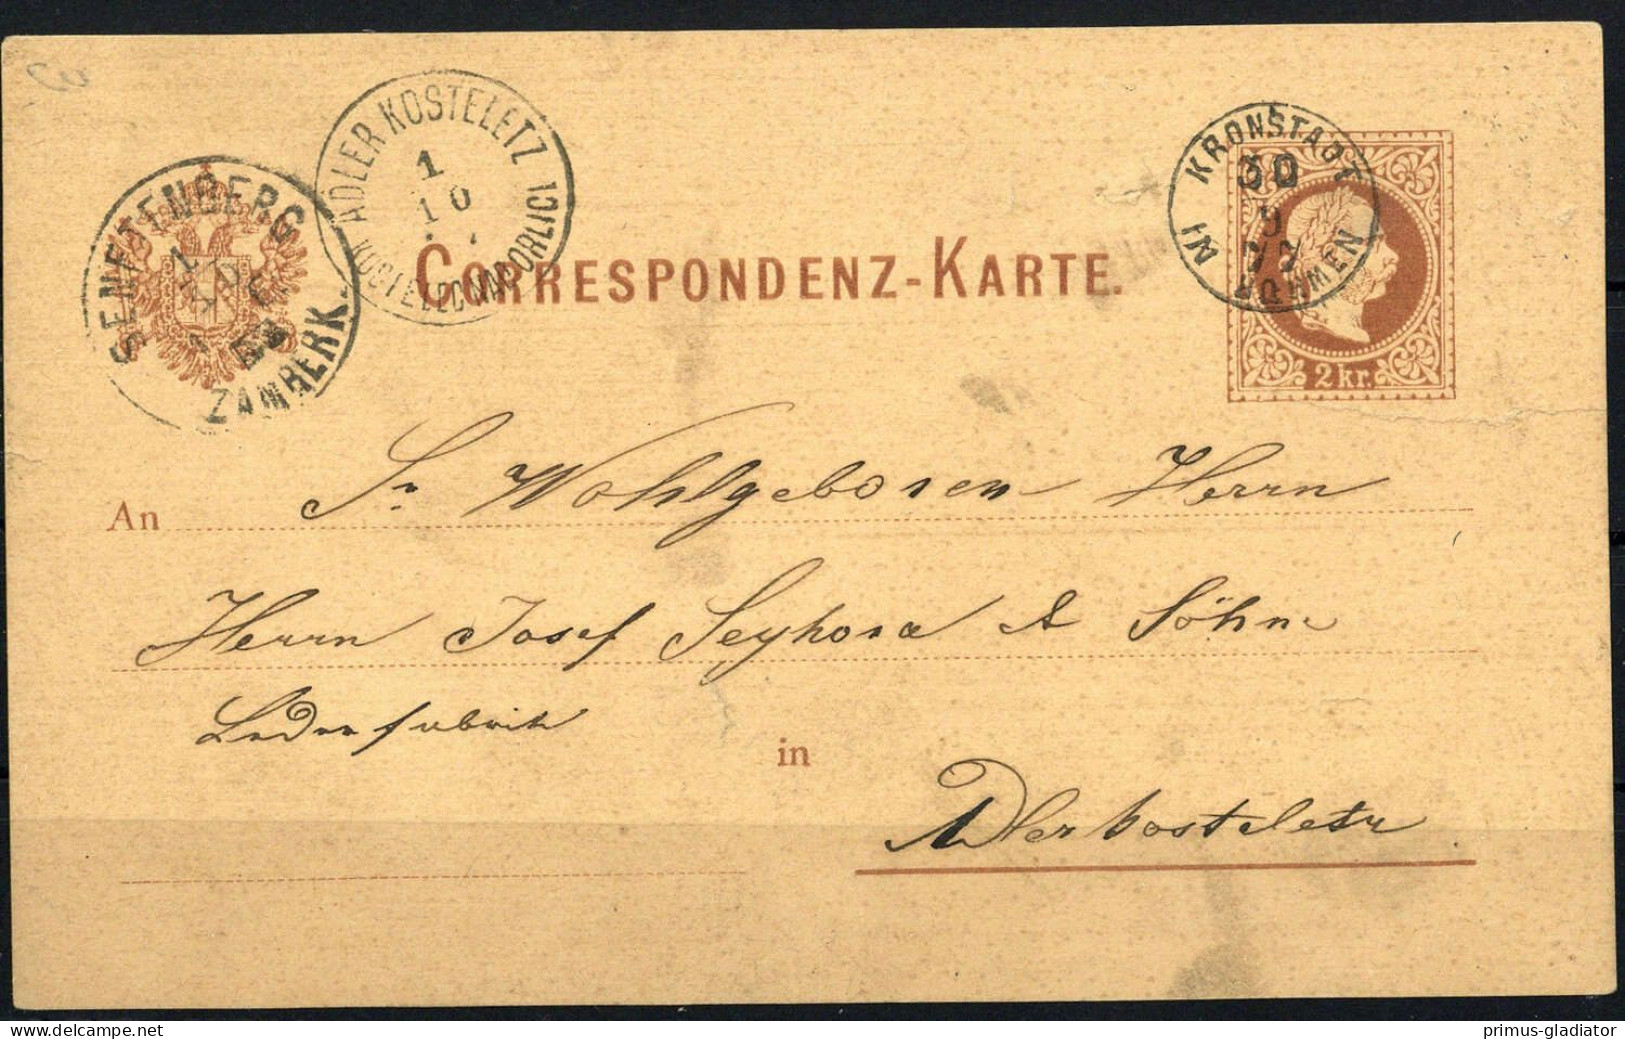 ADLER KOSTELETZ
1
10
KOSTELEC NAD ORLICI
SENFTENBERG
1
ZAMBERK.
KRONSTADT
30
9
77
IN BÖHMEN
CORRESPONDENZ-KARTE.
2 kr.
An Sr Wohlgeboren Herrn
Herrn Josef Seykora & Söhne
Lederfabrik
in
Adlerkosteletz
delcampe.net
primus-gladiator